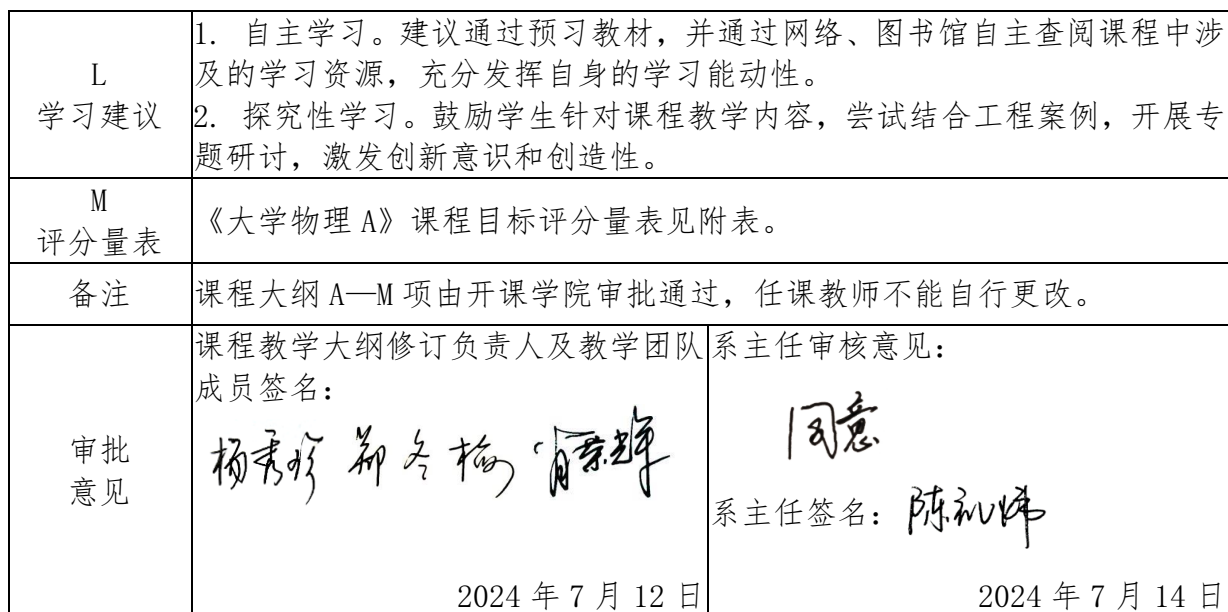 L
学习建议
1. 自主学习。建议通过预习教材，并通过网络、图书馆自主查阅课程中涉
及的学习资源，充分发挥自身的学习能动性。
2. 探究性学习。鼓励学生针对课程教学内容，尝试结合工程案例，开展专
题研讨，激发创新意识和创造性。
M
评分量表
《大学物理 A》课程目标评分量表见附表。
备注
课程大纲 A—M 项由开课学院审批通过，任课教师不能自行更改。
审批
意见
课程教学大纲修订负责人及教学团队
成员签名：
杨秀珍 郑冬梅
2024 年 7 月 12 日
系主任审核意见：
同意
系主任签名：陈
2024 年 7 月 14 日